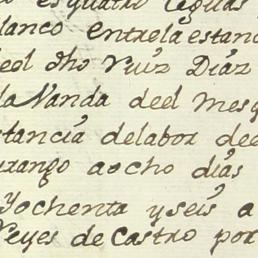 esquatro leguas
blanco entrela estan
deel dho rruiz Diaz
la Vanda deel mes
stancia delabor dee
urango aocho dias
Yochenta yseis a
Reyes de Castro por